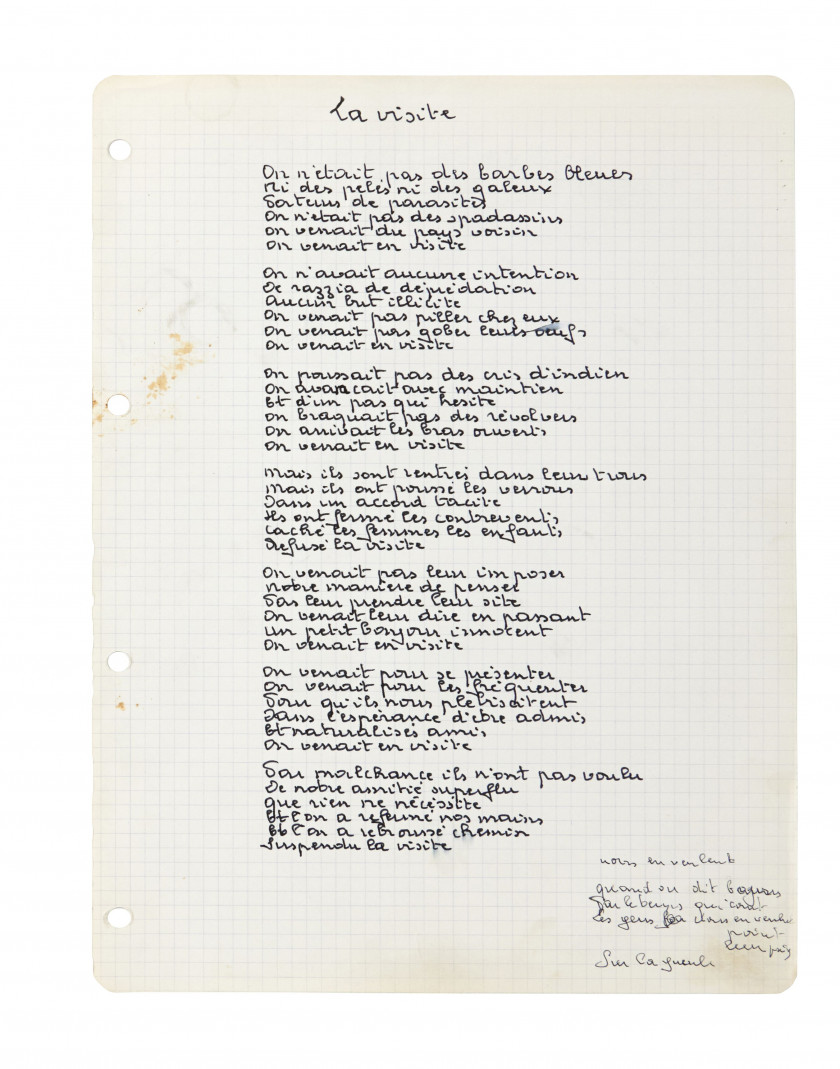 La visite
On n'était pas des barbes bleues
Ni des pelés ni des galeux
Porteurs de parasites
On n'était pas des spadassins
On venait du pays voisin
On venait en visite
On n'avait aucune intention
De razzia de déprédation
Aucun but illicite
On venait pas piller chez eux
On venait pas gober leurs oeufs
On venait en visite
On poussait pas des cris d'indien
On avançait avec maintien
Et d'un pas qui hesite
On braquait pas des révolvers
On arrivait les bras ouverts
On venait en visite
Mais ils sont rentrés dans leur trous
Mais ils ont poussé les verrous
Dans un accord tacite
Ils ont fermé les contrevents
Caché les femmes les enfants
Refusé la visite
On venait pas leur imposer
Notre manière de penser
Pas leur prendre leur site
On venait leur dire en passant
Un petit bonjour innocent
On venait en visite
On venait pour se présenter
On venait pour les fréquenter
Pour qu'ils nous plébiscitent
Dans l'espérance d'être admis
Et naturalisés amis
On venait en visite
Par malchance ils n'ont pas voulu
De notre amitié superflu
Que rien ne nécessite
Et l'on a refermé nos mains
Et l'on a rebroussé chemin
Suspendu la visite
nous en veulent
quand on dit
les gens nous en
point
Sur la gueule